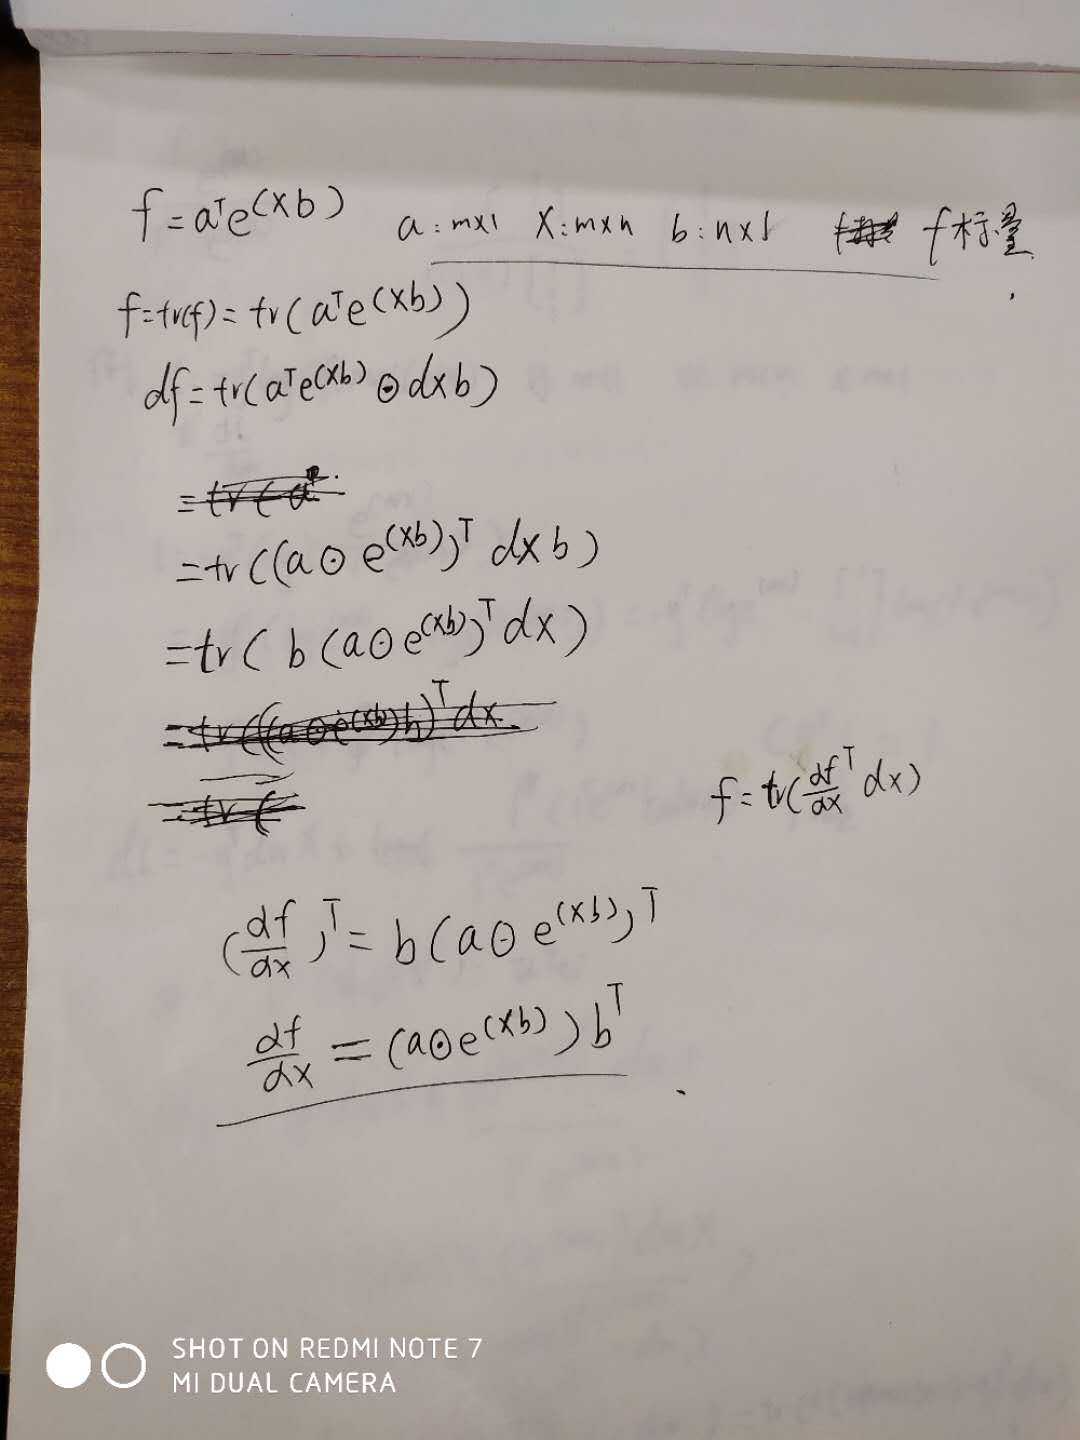 f=aᵀe^(Xb) a:m×1 X:m×n b:n×1 f标量
f=tr(f)=tr(aᵀe^(Xb))
df=tr(aᵀe^(Xb)⊙dxb)
=tr((a⊙e^(Xb))ᵀdxb)
=tr(b(a⊙e^(Xb))ᵀdx)
f=tr(df/dxᵀdx)
(df/dx)ᵀ=b(a⊙e^(Xb))ᵀ
df/dx=(a⊙e^(Xb))bᵀ
SHOT ON REDMI NOTE 7
MI DUAL CAMERA